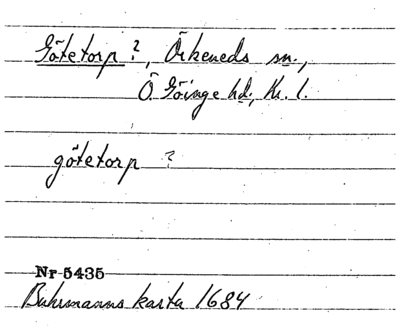 Götetorp ?, Örkeneds sn.,
Ö. Göinge hd, Kr. l.
götetorp ?
Nr 5435
Buhrmanns karta 1684